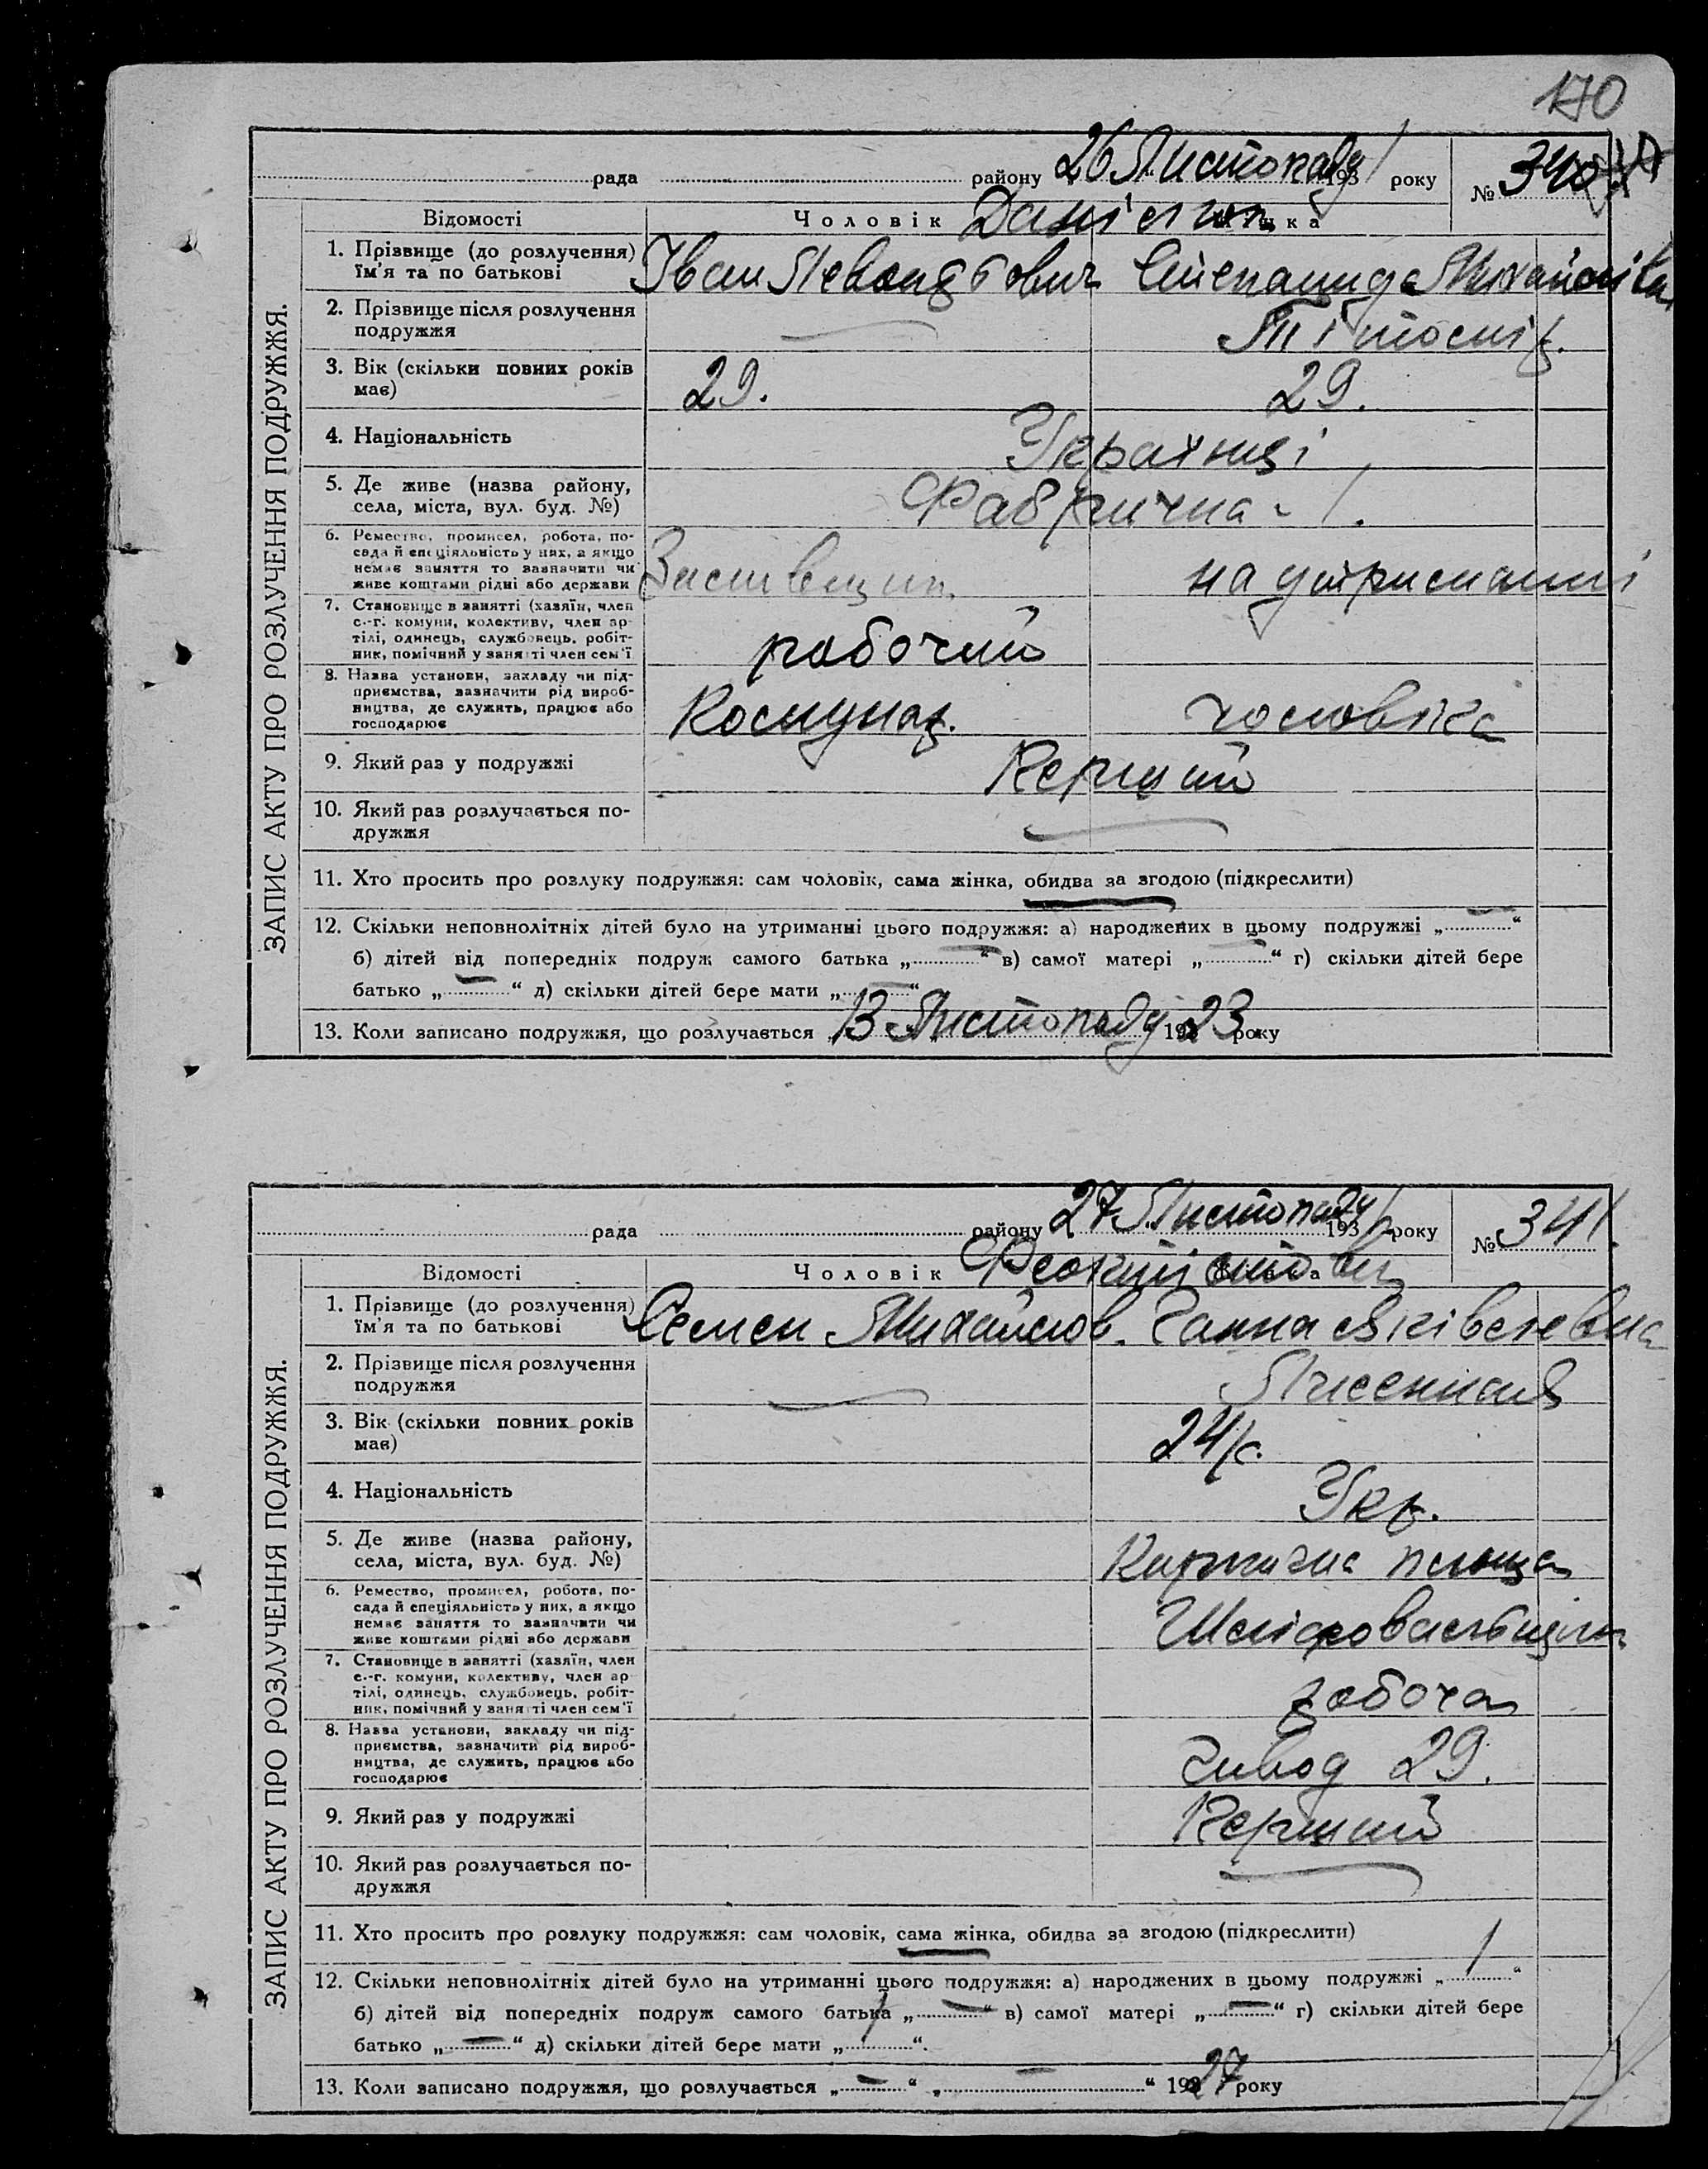 170
рада району 26 Листопаду 1931 року № 340
Відомості Чоловік Жінка
ЗАПИС АКТУ ПРО РОЗЛУЧЕННЯ ПОДРУЖЖЯ.
1. Прізвище (до розлучення)
ім'я та по батькові
Іван Степанида Михайлівна
2. Прізвище після розлучення
подружжя
3. Вік (скільки повних років
має)
29. 29.
4. Національність
Українці
5. Де живе (назва району,
села, міста, вул. буд. №)
Фабрична - 1.
6. Ремество, промисел, робота, по-
сада й спеціяльність у них, а якщо
немає заняття то зазначити чи
живе коштами рідні або держави
на утриманні
7. Становище в занятті (хазяїн, член
с.-г. комуни, колективу, член ар-
тілі, одинець, службовець, робіт-
ник, помічний у занятті член сем'ї
робочий
8. Назва установи, закладу чи під-
приємства, зазначити рід вироб-
ництва, де служить, працює або
господарює
Комунар. чоловіка
9. Який раз у подружжі
Перший
10. Який раз розлучається по-
дружжя
11. Хто просить про розлуку подружжя: сам чоловік, сама жінка, обидва за згодою (підкреслити)
12. Скільки неповнолітніх дітей було на утриманні цього подружжя: а) народжених в цьому подружжі „ — “
б) дітей від попередніх подруж самого батька „ — “ в) самої матері „ — “ г) скільки дітей бере
батько „ — “ д) скільки дітей бере мати „ — “
13. Коли записано подружжя, що розлучається „13 Листопаду 1923 року
рада району 27 Листопаду 1931 року № 341.
Відомості Чоловік Жінка
Феоктістови
ЗАПИС АКТУ ПРО РОЗЛУЧЕННЯ ПОДРУЖЖЯ.
1. Прізвище (до розлучення)
ім'я та по батькові
Семен Михайлов. Ганна
2. Прізвище після розлучення
подружжя
3. Вік (скільки повних років
має)
24 р.
4. Національність
Укр.
5. Де живе (назва району,
села, міста, вул. буд. №)
Кирпична площа
6. Ремество, промисел, робота, по-
сада й спеціяльність у них, а якщо
немає заняття то зазначити чи
живе коштами рідні або держави
Шліфовальщиця
7. Становище в занятті (хазяїн, член
с.-г. комуни, колективу, член ар-
тілі, одинець, службовець, робіт-
ник, помічний у занятті член сем'ї
робоча
8. Назва установи, закладу чи під-
приємства, зазначити рід вироб-
ництва, де служить, працює або
господарює
завод 29.
9. Який раз у подружжі
Перший
10. Який раз розлучається по-
дружжя
11. Хто просить про розлуку подружжя: сам чоловік, сама жінка, обидва за згодою (підкреслити)
12. Скільки неповнолітніх дітей було на утриманні цього подружжя: а) народжених в цьому подружжі „ 1 “
б) дітей від попередніх подруж самого батька „ — “ в) самої матері „ — “ г) скільки дітей бере
батько „ — “ д) скільки дітей бере мати „ 1 “.
13. Коли записано подружжя, що розлучається „ — “ „ — “ 1927 року